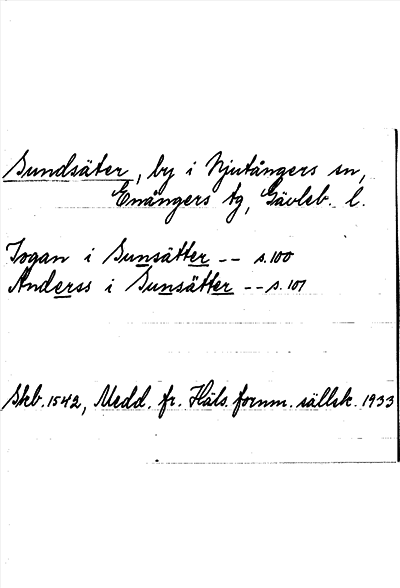 Sundsäter, by i Njutångers sn,
Enångers tg, Gävleb. l.
Jogan i Sunsätter -- s. 100
Anderss i Sunsätter -- s. 101
Skb. 1542, Medd. fr. Häls. fornm. sällsk. 1933